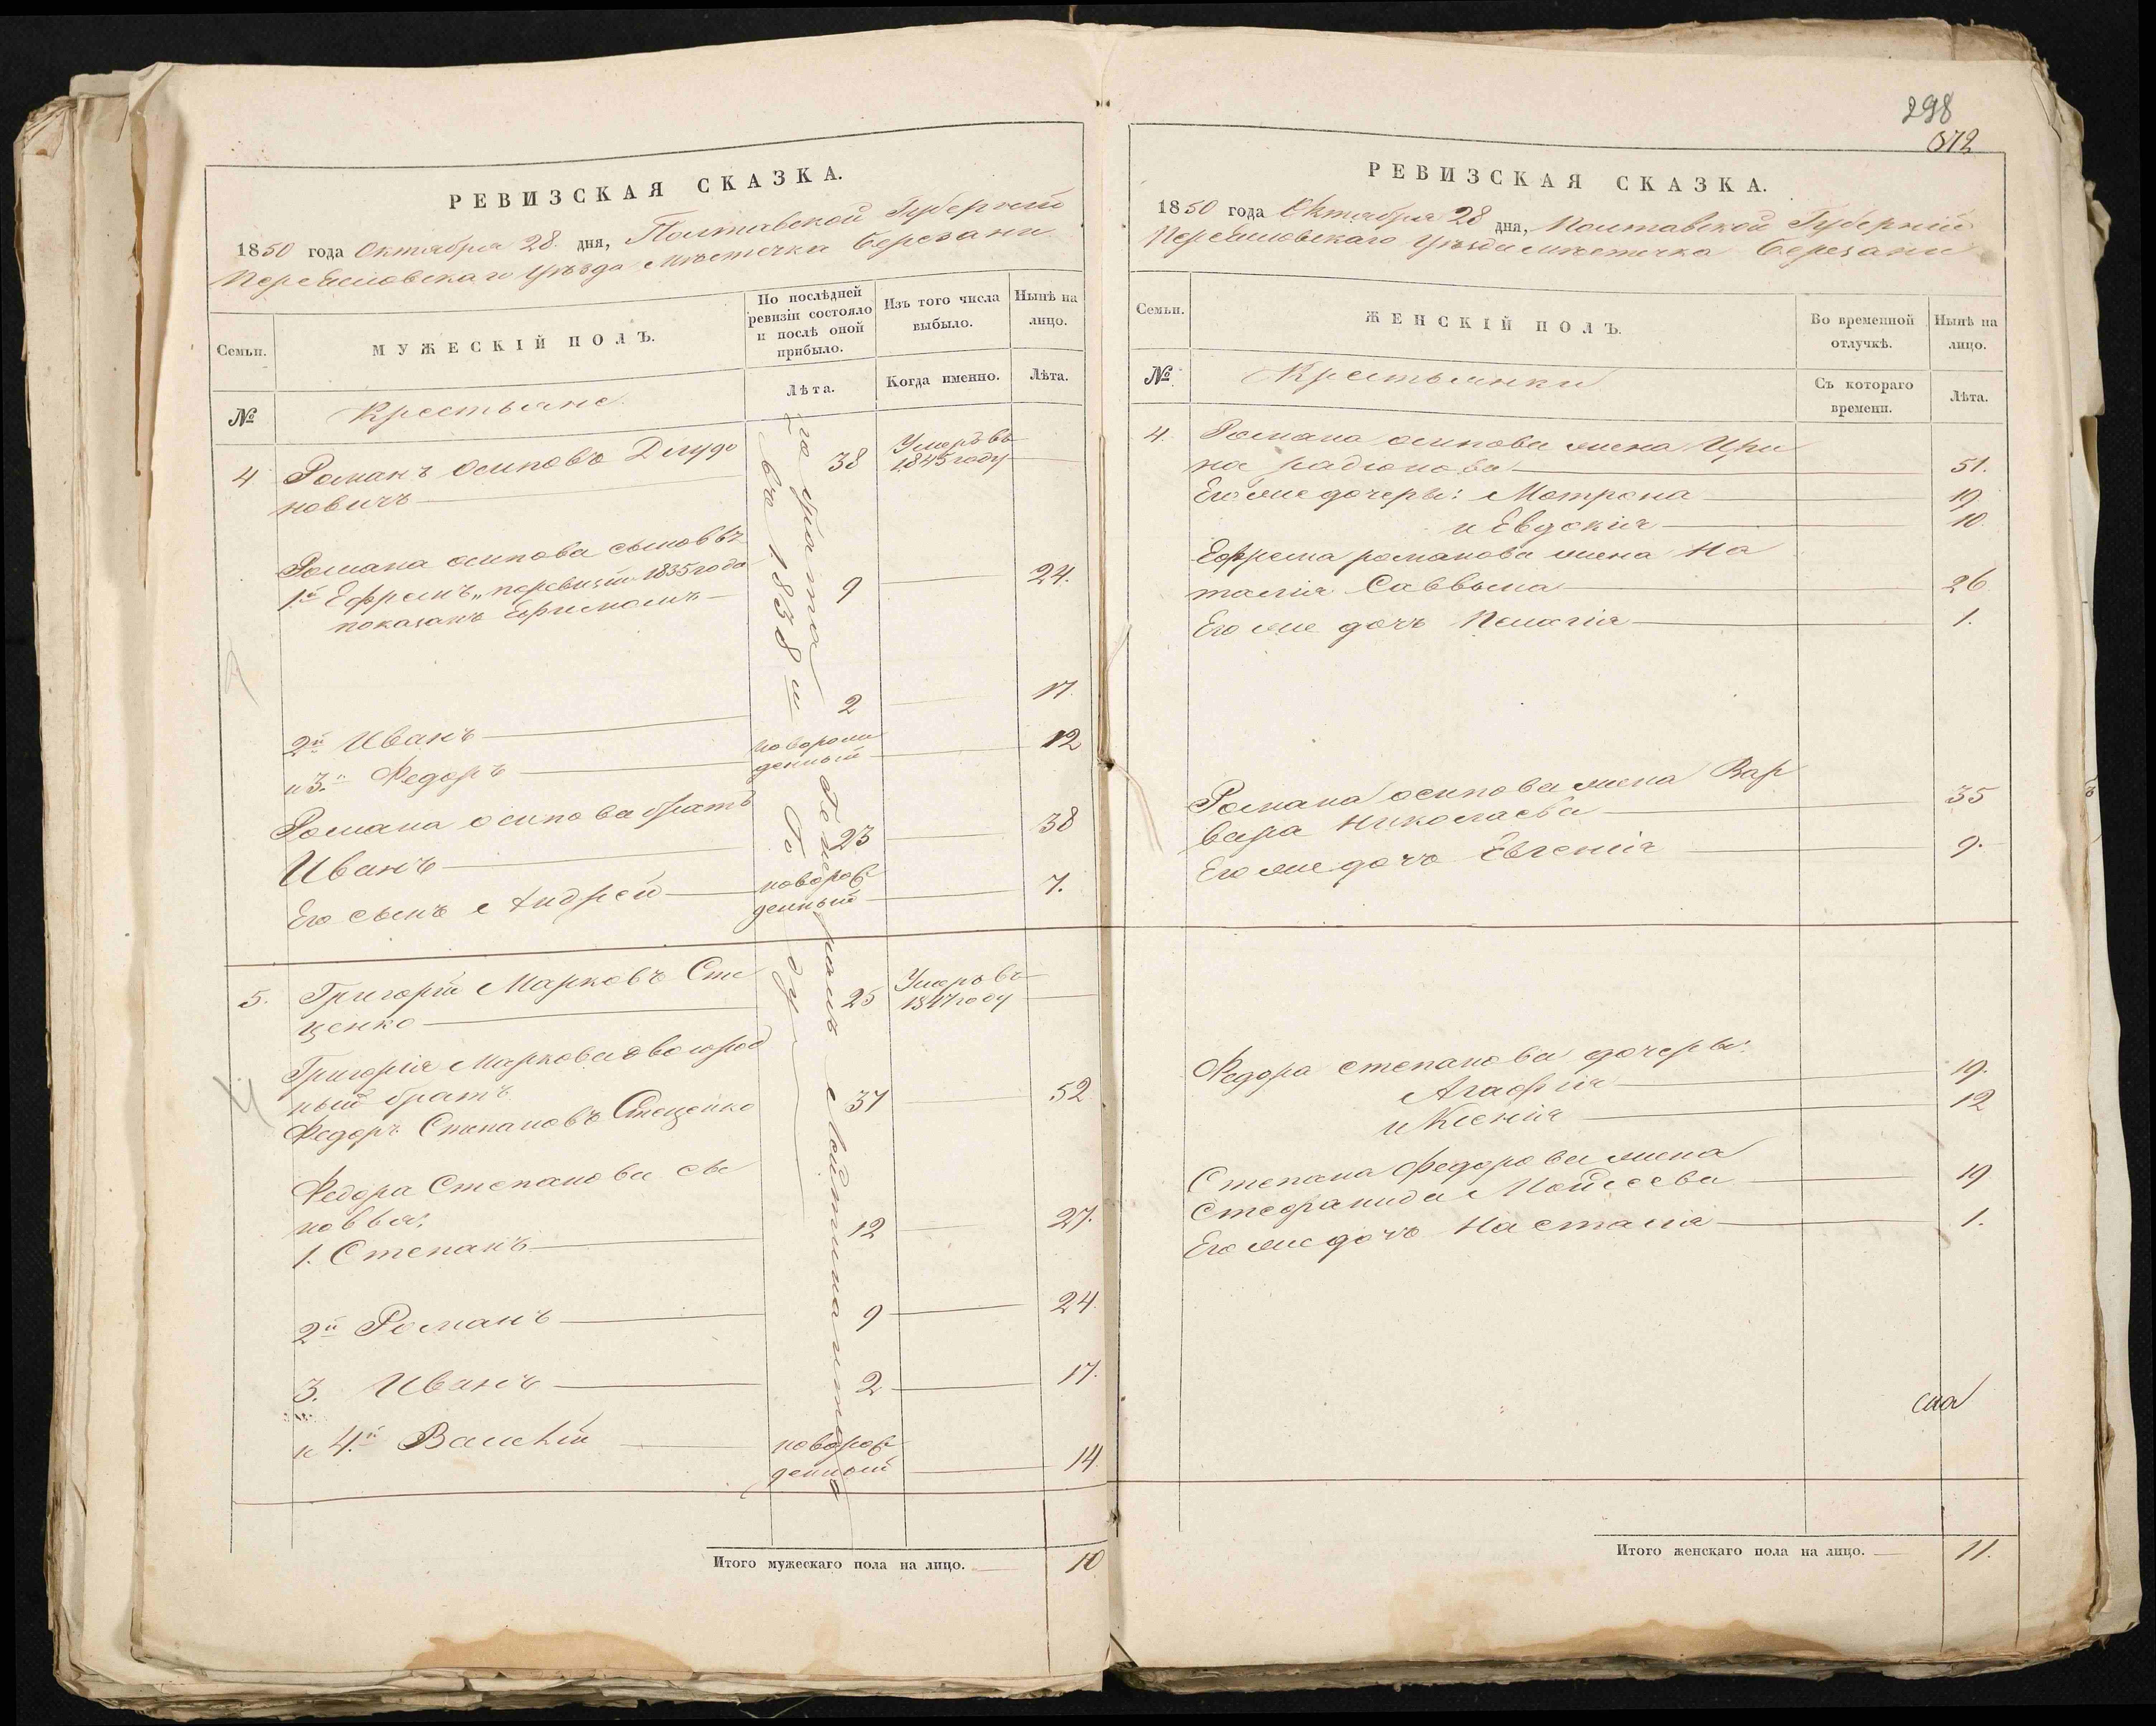 РЕВИЗСКАЯ СКАЗКА.
1850 года Октября 28 дня, Полтавской Губернии
Переяславскаго Уѣзда мѣстечка Березани
Семьи.
МУЖЕСКІЙ ПОЛЪ.
По послѣдней ревизіи состояло и послѣ оной прибыло.
Изъ того числа выбыло.
Нынѣ на лицо.
№
Крестьяне
Лѣта.
Когда именно.
Лѣта.
4 Романъ Осиповъ
новичъ 38 Умеръ въ 1845 году
Романа осипова сыновья
1й Ефремъ, по ревизіи 1835 года 9 24.
показанъ Ефимомъ
2й Иванъ 2 17.
и 3й Федоръ новорожденный 12
Романа осипова братъ
Иванъ 23 38
Его сынъ Андрей новорожденный 7.
5. Григорій Марковъ Сте
ценко 25 Умеръ въ 1847 году
Григорія Маркова двоюрод
ный братъ
Федоръ Степановъ Стеценко 37 52
Федора Степанова сы
новья:
1. Степанъ 12 27.
2й Романъ 9 24.
3. Иванъ 2 17.
и 4й Василій новорожденный 14
въ 1838 м году
Итого мужескаго пола на лицо. 10
298
РЕВИЗСКАЯ СКАЗКА.
1850 года Октября 28 дня, Полтавской Губерніи
Переяславскаго Уѣзда мѣстечка Березани
Семьи.
ЖЕНСКІЙ ПОЛЪ.
Во временной отлучкѣ.
Нынѣ на лицо.
№
Крестьянки
Съ котораго времени.
Лѣта.
4. Романа осипова жена Ири
на радіонова 51.
Его же дочеры: Мотрона 19
и Евдокія 10
Ефрема романова жена На
талія Саввына 26
Его же дочь Пелагія 1.
Романа осипова жена Вар
вара Николаева 35
Его же дочь Евгенія 9.
Федора степанова дочеры:
Агафія 19.
и Ксенія 12
Степана федорова жена
Стефанида Мойсеева 19
Его же дочь Насталія 1.
Итого женскаго пола на лицо. 11.